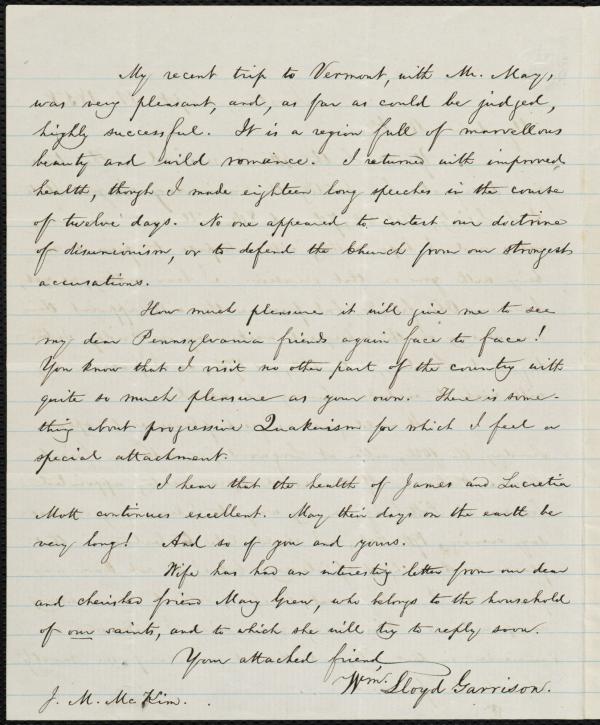 My recent trip to Vermont, with Mr. May,
was very pleasant, and, as far as could be judged,
highly successful. It is a region full of marvellous
beauty and wild romance. I returned with improved
health, though I made eighteen long speeches in the course
of twelve days. No one appeared to contest our doctrine
of disunionism, or to defend the Church from our strongest
accusations.
How much pleasure it will give me to see
my dear Pennsylvania friends again face to face!
You know that I visit no other part of the country with
quite so much pleasure as your own. There is some-
thing about progressive Quakerism for which I feel a
special attachment.
I hear that the health of James and Lucretia
Mott continues excellent. May their days on the earth be
very long! And so of you and yours.
Wife has had an interesting letter from our dear
and cherished friend Mary Grew, who belongs to the household
of our saints, and to which she will try to reply soon.
Your attached friend,
Wm. Lloyd Garrison.
J. M. McKim.